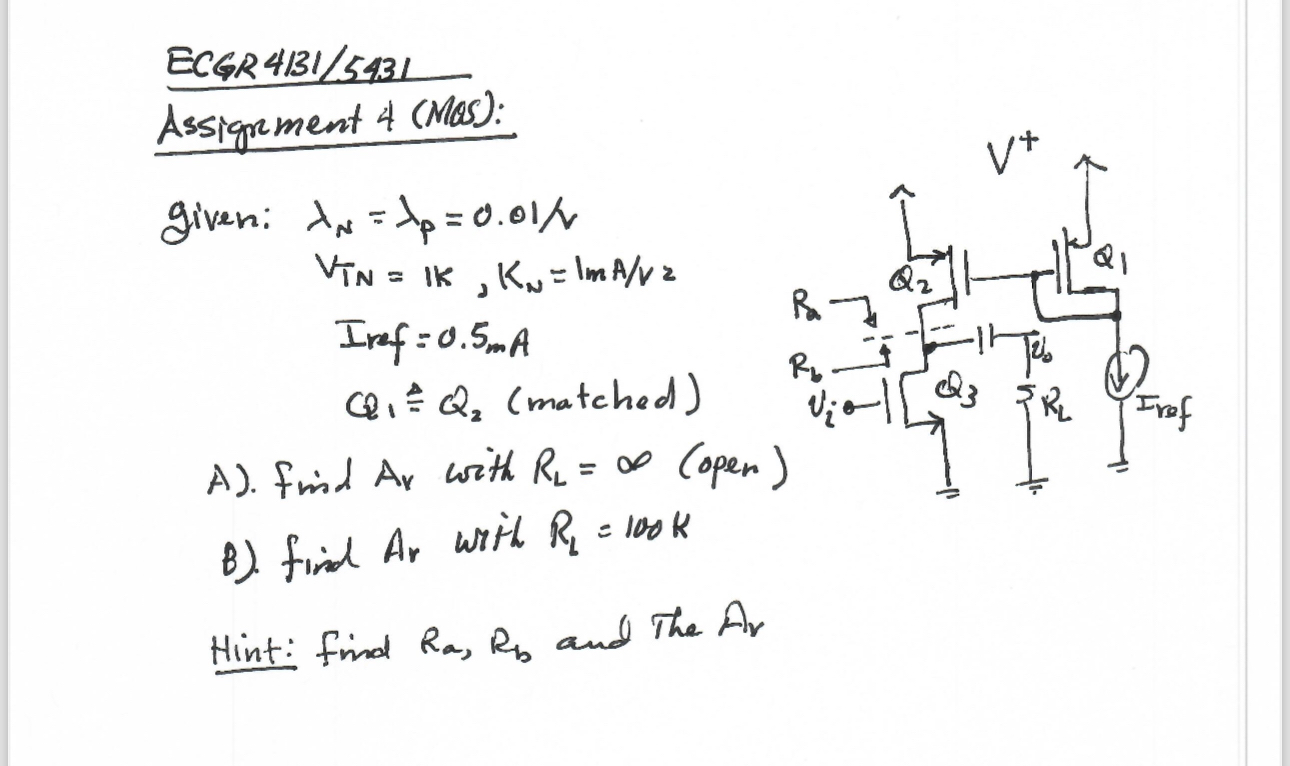 ECGR 4131/5431
Assignment 4 (MOS):
given: λN = λP = 0.01/V
VTN = 1K , KN = 1mA/V2
Iref = 0.5mA
Q1 ≜ Q2 (matched)
A). find Av with RL = ∞ (open)
B). find Av with RL = 100 K
Hint: find Ra, Rb and The Av
V+
Q1
Q2
Ra
Rb
Vi
Q3
Vo
RL
Iref